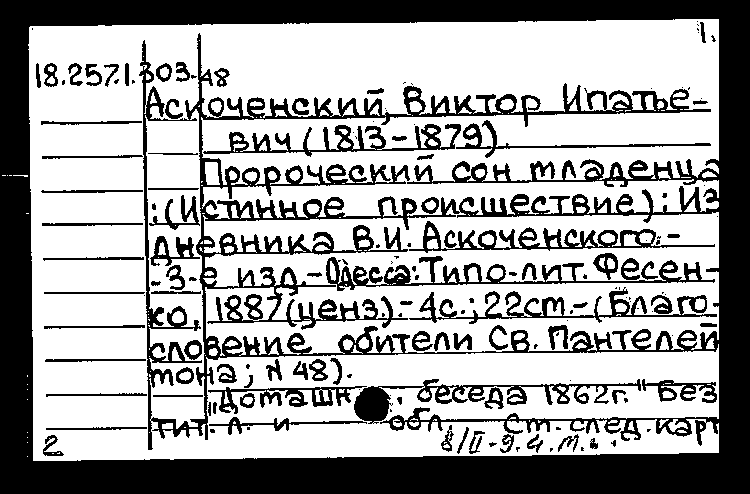 1.
18.257.1.303-48
Аскоченский, Виктор Ипатье-
вич (1813-1879).
Пророческий сон младенца
: (Истинное происшествие) : Из
дневника В.И. Аскоченского. -
- 3-е изд. - Одесса : Типо-лит. Фесен-
ко, 1887 (ценз.). - 4с. ; 22см. - (Благо-
словение обители Св. Пантелей
мона ; N 48).
„Домашн. беседа 1862г." Без
тит. л. и обл. См. след. карт
2
8/II-9.4.М.